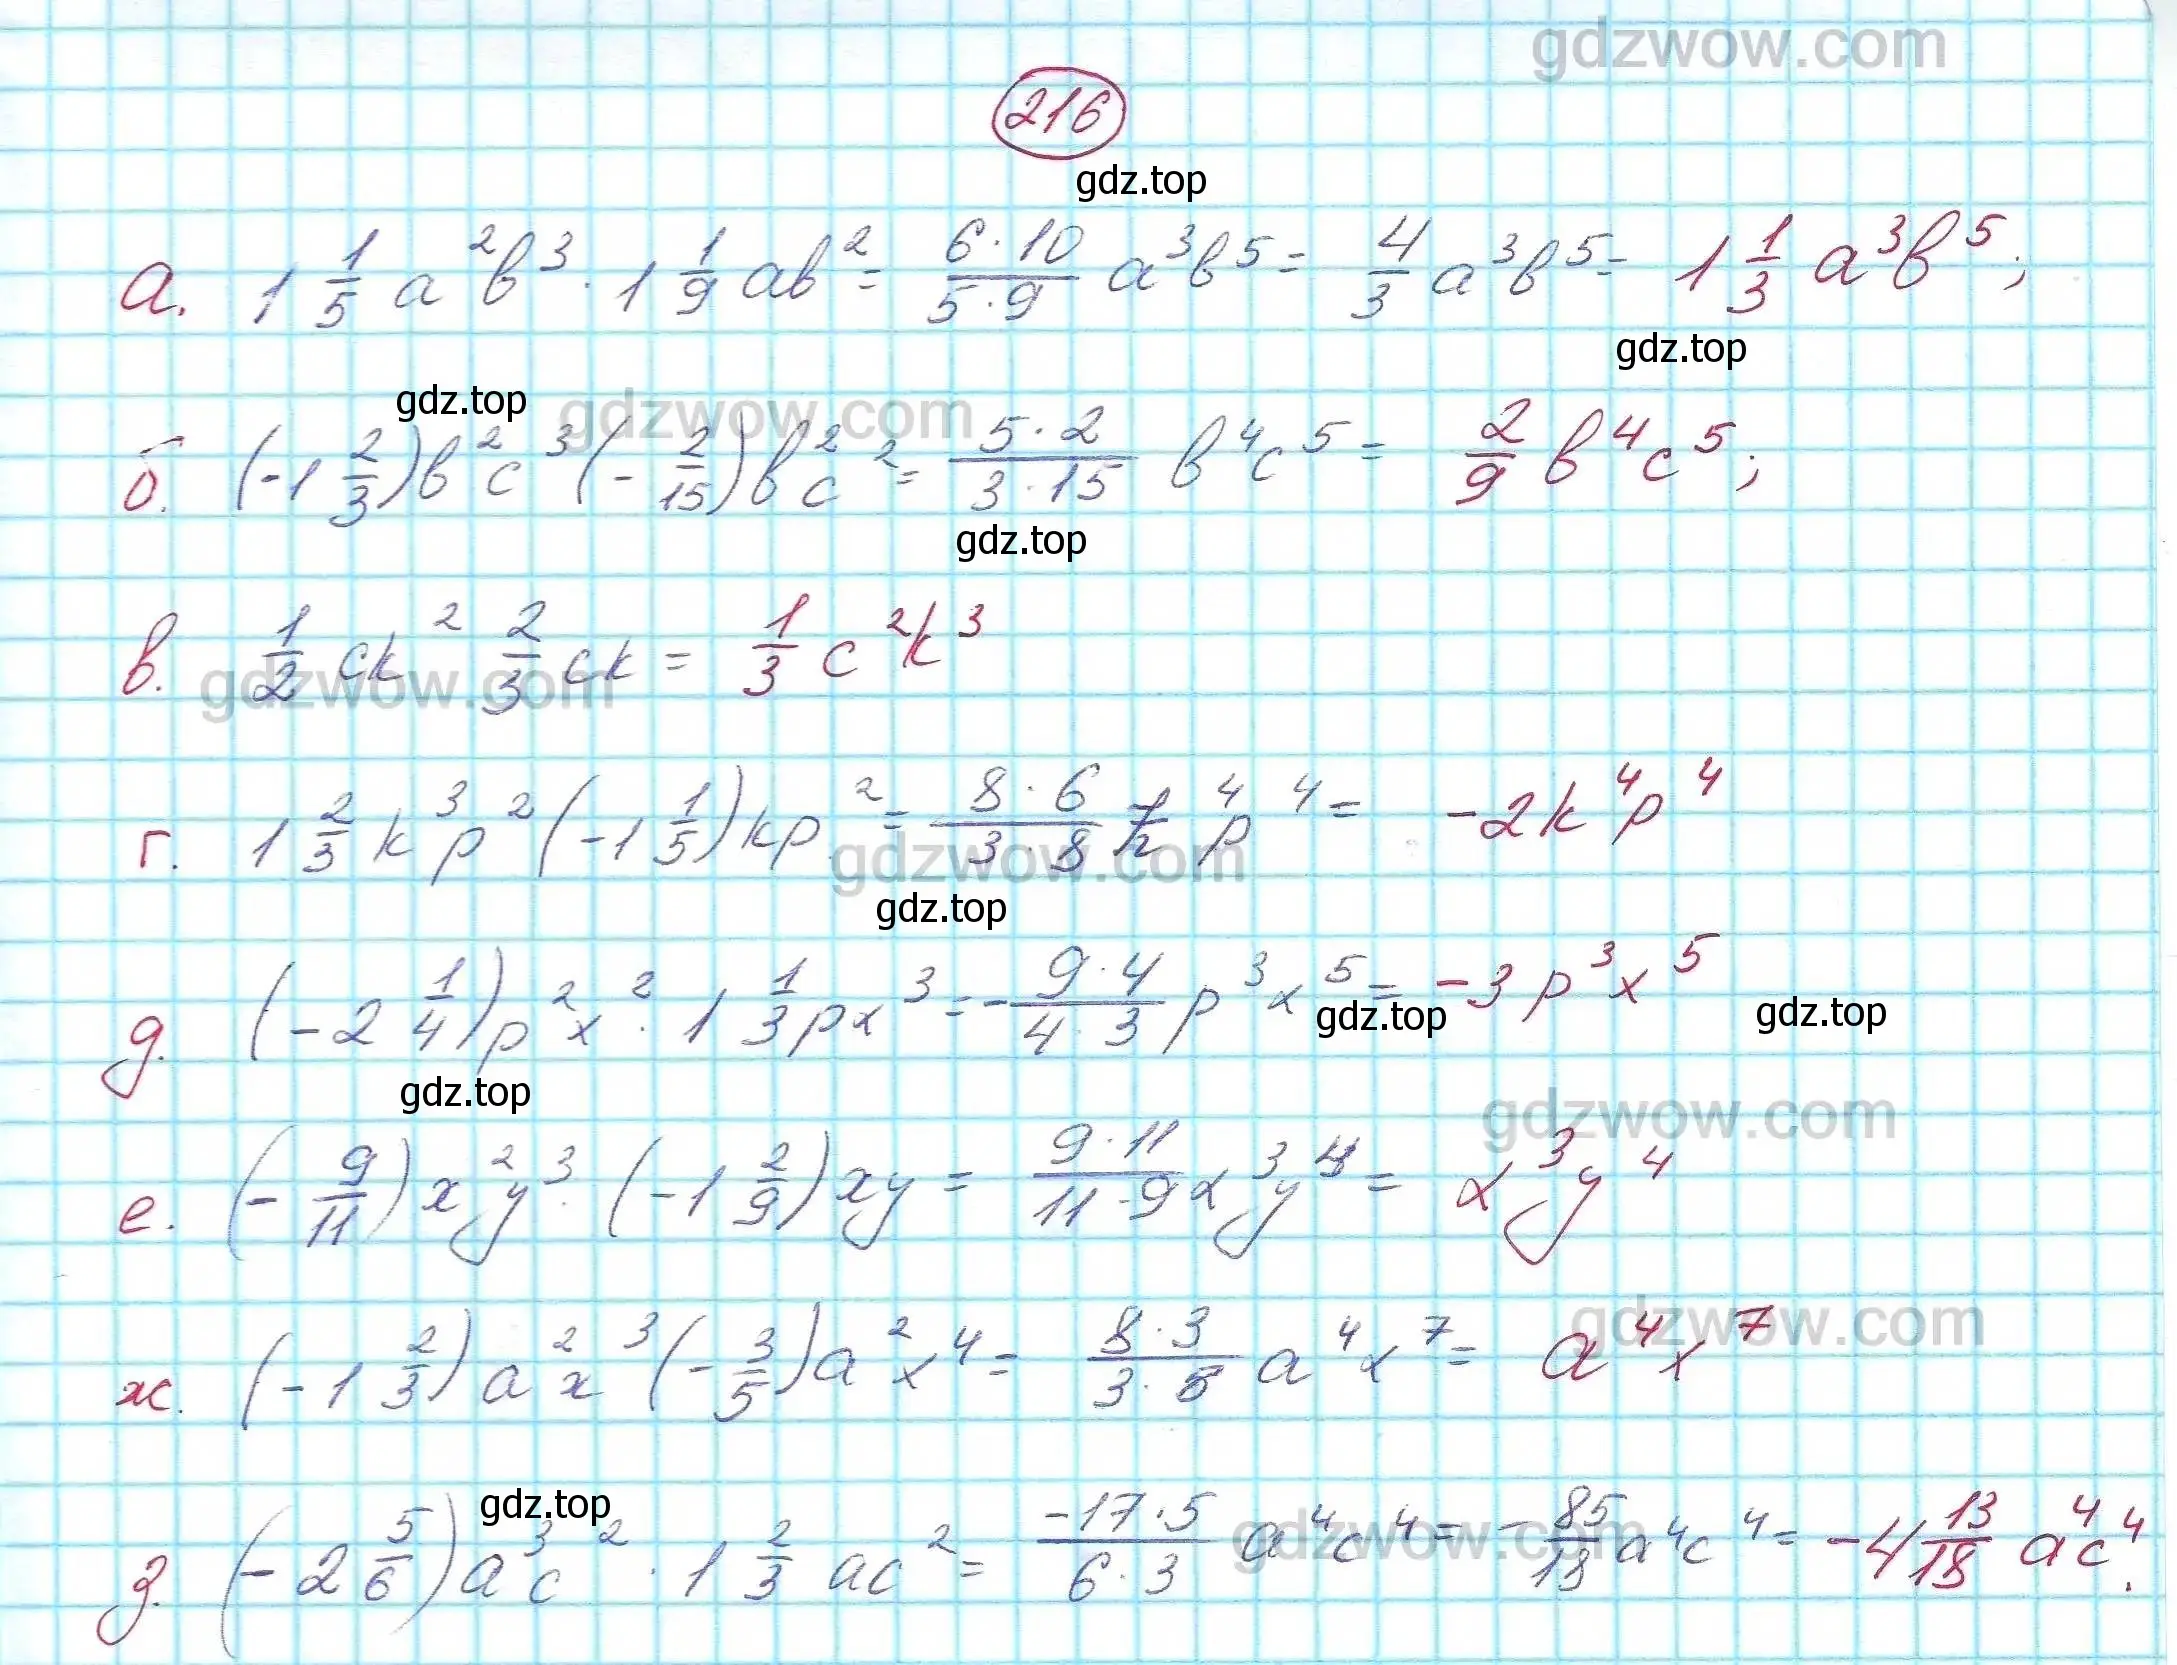 gdzwow.com
216
gdz.top
а. 1 1/5 a²b³ · 1 1/9 ab² = (6·10)/(5·9) a³b⁵ = 4/3 a³b⁵ = 1 1/3 a³b⁵;
gdz.top
gdz.top gdzwow.com
б. (-1 2/3)b²c³(-2/15)b²c² = (5·2)/(3·15) b⁴c⁵ = 2/9 b⁴c⁵;
gdz.top
в. 1/2 ck² 2/3 ck = 1/3 c²k³
gdzwow.com
г. 1 2/3 k³p²(-1 1/5)kp² = (8·6)/(3·8) k⁴p⁴ = -2k⁴p⁴
gdzwow.com
gdz.top
д. (-2 1/4)p²x² · 1 1/3 px³ = -(9·4)/(4·3) p³x⁵ = -3p³x⁵
gdz.top gdz.top
gdz.top
gdzwow.com
е. (-9/11)x²y³ · (-1 2/9)xy = (9·11)/(11·9) x³y⁴ = x³y⁴
gdzwow.com
ж. (-1 2/3)a²x³(-3/5)a²x⁴ = (8·3)/(3·8) a⁴x⁷ = a⁴x⁷
gdz.top
з. (-2 5/6)a³c² · 1 2/3 ac² = (-17·5)/(6·3) a⁴c⁴ = -85/18 a⁴c⁴ = -4 13/18 a⁴c⁴.
gdzwow.com